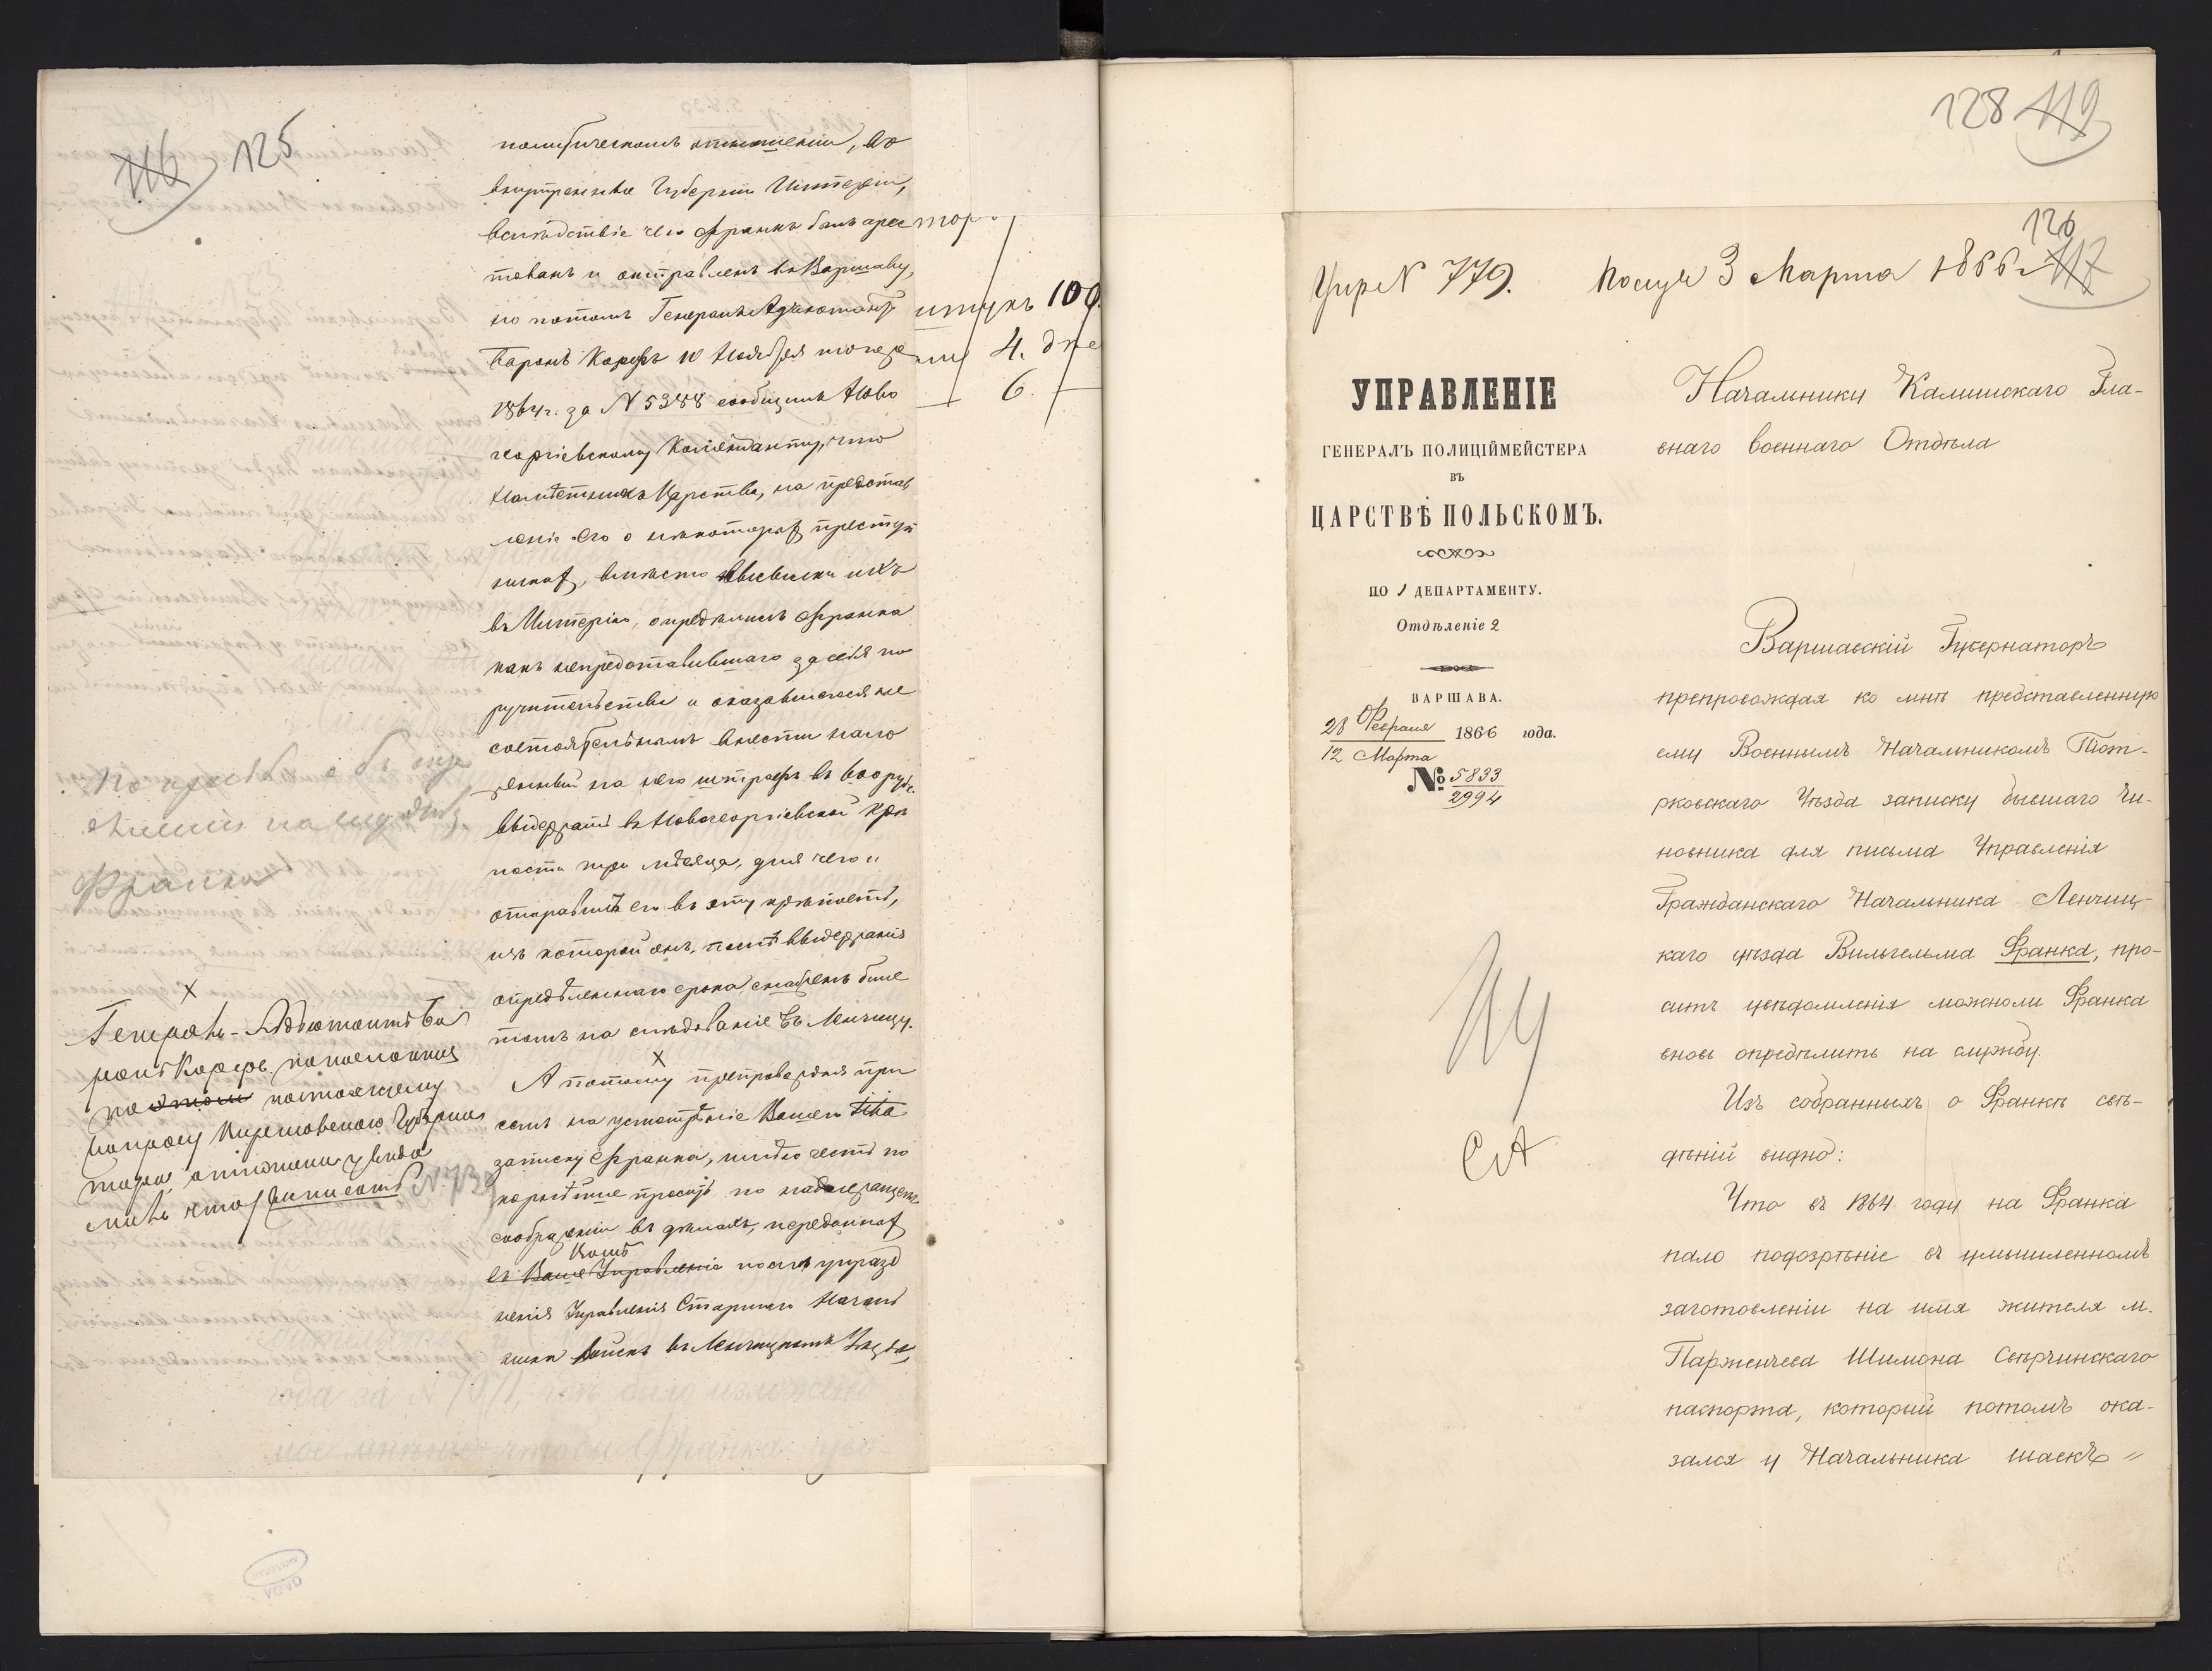 116 125
политическомъ отношеніи, во
внутреннія Губерніи Имперіи,
вслѣдствіе чего Франкъ былъ арес
тованъ и отправленъ въ Варшаву,
но потомъ Генералъ Адъютантъ
Баронъ Корфъ 10 Ноября того же
1864 г. за N 5388 сообщилъ Ново
георгіевскому Коменданту, что
Намѣстникъ Царства, на представ
леніе его о нѣкоторыхъ преступ
никахъ, вмѣсто высылки ихъ
въ Имперію, опредѣлилъ Франка
какъ непредставившаго за себя по
ручительства и оказавшагося не
состоятельнымъ внести нало
женный на него штрафъ въ 600 руб.
выдержать въ Новогеоргіевской крѣ
пости три мѣсяца, для чего и
отправить его въ эту крѣпость,
изъ которой онъ, послѣ выдержанія
опредѣленнаго срока снабженъ биле
томъ на слѣдованіе въ Ленчицу.
А потому препровождая при
семъ на усмотрѣніе Ваше
записку Франка, имѣю честь по
корнѣйше просить по надлежащемъ
соображеніи въ дѣлахъ, переданныхъ
Вамъ
въ Ваше Управленіе послѣ упразд
ненія Управленія Старшаго Началь
ника войскъ въ Ленчицкомъ Уѣздѣ,
По просьбѣ объ опре
дѣленіи на службу
Франка
х
Генералъ-Адъютантъ Ба
ронъ Корфъ
по этому настоящему
вопросу Губерна
тора
N 173
штукъ 100.
4. дне
6.
128 119
126
117
Упр N 779. Получ 3 Марта 1866 г.
УПРАВЛЕНІЕ
ГЕНЕРАЛЪ ПОЛИЦІЙМЕЙСТЕРА
ВЪ
ЦАРСТВѢ ПОЛЬСКОМЪ.
ПО 1 ДЕПАРТАМЕНТУ.
Отдѣленіе 2
ВАРШАВА.
28 Февраля
12 Марта 1866 года.
№ 5833
2994
Начальнику Калишскаго Гла-
внаго военнаго Отдѣла
Варшавскій Губернаторъ
препровождая ко мнѣ представленную
ему Военнымъ Начальникомъ Піот-
рковскаго Уѣзда записку бывшаго Чи-
новника для письма Управленія
Гражданскаго Начальника Ленчиц-
каго уѣзда Вильгельма Франка, про-
ситъ увѣдомленія можноли Франка
вновь опредѣлить на службу.
Изъ собранныхъ о Франкѣ свѣ-
дѣній видно:
Что въ 1864 году на Франка
пало подозрѣніе въ умышленномъ
заготовленіи на имя жителя м.
Парженчева Шимона Свѣрчинскаго
паспорта, который потомъ ока-
зался у Начальника шаекъ